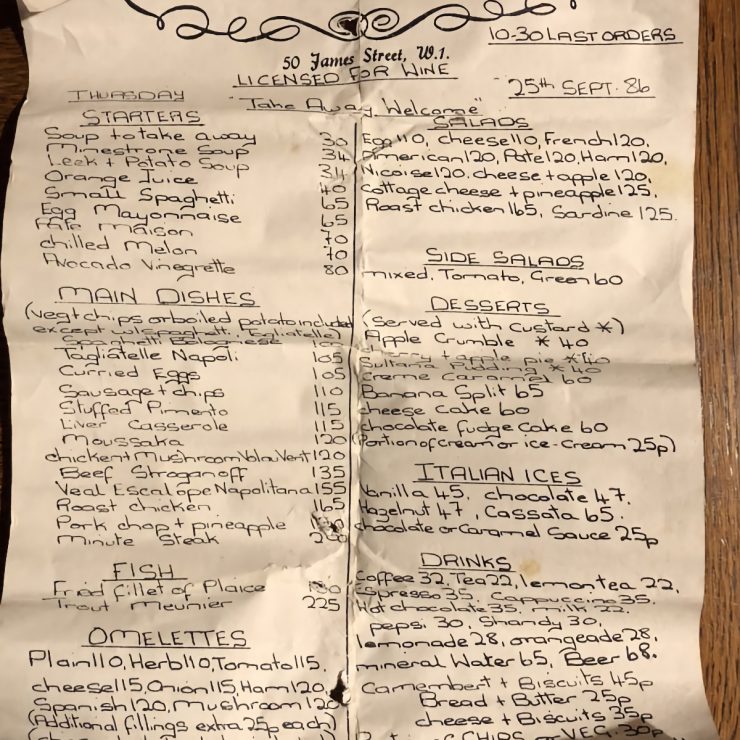 10-30 LAST ORDERS
50 James Street, W.1.
LICENSED FOR WINE
THURSDAY
25th SEPT. 86
"Take Away Welcome"
STARTERS
Soup to take away 30
Minestrone Soup 34
Leek + Potato Soup 34
Orange Juice 40
Small Spaghetti 65
Egg Mayonnaise 65
Pate Maison 70
chilled Melon 70
Avocado Vinegrette 80
MAIN DISHES
(veg+chips or boiled potato included
except w/spaghetti, Tagliatelle)
Spaghetti Bolognese
Tagliatelle Napoli 105
Curried Eggs 105
Sausage + chips 110
Stuffed Pimento 115
Liver Casserole 115
Moussaka 120
chicken + Mushroom Vola Vent 120
Beef Stroganoff 135
Veal Escalope Napolitana 155
Roast chicken 165
Pork chop + pineapple
Minute Steak
FISH
Fried fillet of Plaice
Trout Meunier 225
OMELETTES
Plain 110, Herb 110, Tomato 115,
cheese 115, Onion 115, Ham 120,
Spanish 120, Mushroom 120
(Additional fillings extra 25p each)
SALADS
Egg 110, cheese 110, French 120,
American 120, Pate 120, Ham 120,
Nicoise 120, cheese + apple 120,
Cottage cheese + pineapple 125,
Roast chicken 165, Sardine 125.
SIDE SALADS
mixed, Tomato, Green 60
DESSERTS
(Served with custard *)
Apple Crumble * 40
+ apple pie *
Sultana Pudding * 40
Creme Caramel 60
Banana Split 65
cheese Cake 60
chocolate fudge Cake 60
(Portion of cream or ice-cream 25p)
ITALIAN ICES
Vanilla 45, chocolate 47,
Hazelnut 47, Cassata 65.
chocolate or Caramel Sauce 25p
DRINKS
Coffee 32, Tea 22, lemon tea 22,
Espresso 35, Cappuccino 35,
Hot chocolate 35, milk 22,
pepsi 30, Shandy 30,
lemonade 28, orangeade 28,
mineral Water 65, Beer 68.
Camembert + Biscuits 45p
Bread + Butter 25p
cheese + Biscuits 35p
CHIPS or VEG. 30p